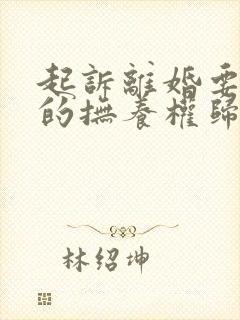 起訴離婚要
的撫養權歸
林绍坤